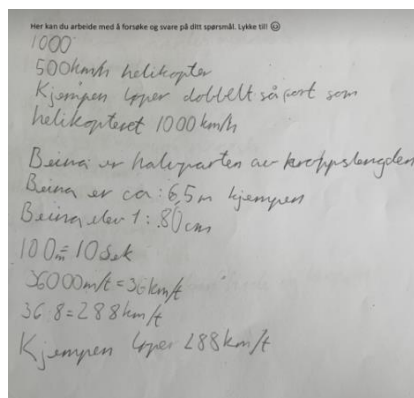 Her kan du arbeide med å forsøke og svare på ditt spørsmål. Lykke til! ☺
1000
500km/h helikopter
Kjempen løper dobbelt så fort som
helikopteret 1000 km/h
Beina er halvparten av kroppslengden
Beina er ca: 6,5 m kjempen
Beina elev 1: 80 cm
100m = 10 sek
36000m/t = 36km/t
36·8=288km/t
Kjempen løper 288km/t